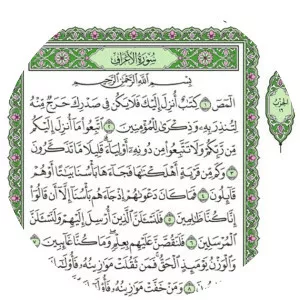 سُورَةُ الْأَعْرَافِ
بِسْمِ اللَّهِ الرَّحْمَٰنِ الرَّحِيمِ
الٓمٓصٓ ١ كِتَٰبٌ أُنزِلَ إِلَيْكَ فَلَا يَكُن فِى صَدْرِكَ حَرَجٌ مِّنْهُ
لِتُنذِرَ بِهِۦ وَذِكْرَىٰ لِلْمُؤْمِنِينَ ٢ ٱتَّبِعُوا۟ مَآ أُنزِلَ إِلَيْكُم
مِّن رَّبِّكُمْ وَلَا تَتَّبِعُوا۟ مِن دُونِهِۦٓ أَوْلِيَآءَ قَلِيلًا مَّا تَذَكَّرُونَ
٣ وَكَم مِّن قَرْيَةٍ أَهْلَكْنَٰهَا فَجَآءَهَا بَأْسُنَا بَيَٰتًا أَوْ هُمْ
قَآئِلُونَ ٤ فَمَا كَانَ دَعْوَىٰهُمْ إِذْ جَآءَهُم بَأْسُنَآ إِلَّآ أَن قَالُوٓا۟
إِنَّا كُنَّا ظَٰلِمِينَ ٥ فَلَنَسْـَٔلَنَّ ٱلَّذِينَ أُرْسِلَ إِلَيْهِمْ وَلَنَسْـَٔلَنَّ
ٱلْمُرْسَلِينَ ٦ فَلَنَقُصَّنَّ عَلَيْهِم بِعِلْمٍ وَمَا كُنَّا غَآئِبِينَ ٧
وَٱلْوَزْنُ يَوْمَئِذٍ ٱلْحَقُّ فَمَن ثَقُلَتْ مَوَٰزِينُهُۥ فَأُو۟لَٰٓئِكَ
٨ وَمَنْ خَفَّتْ مَوَٰزِينُهُۥ فَأُو۟لَٰٓئِكَ
الحزب
١٦